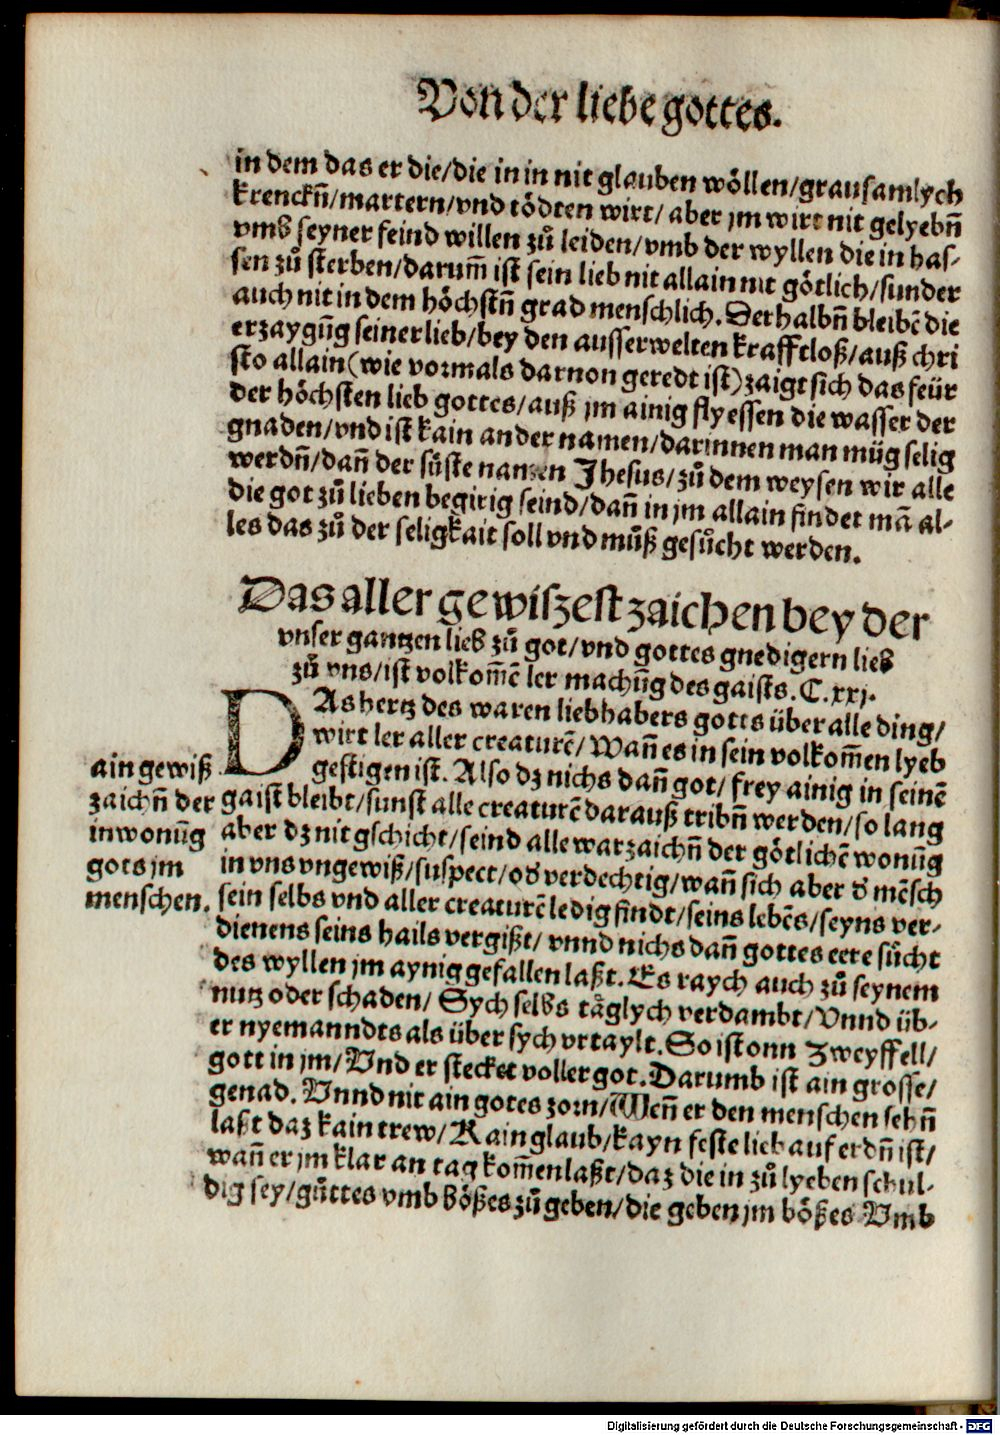 Von der liebe gottes.
in dem das er die/die in in nit glauben wöllen/grausamlych
krenckñ/martern/vnd tödten wirt/ aber jm wirt nit gelyebñ
vmb seyner feind willen zů leiden/vmb der wyllen die in has-
sen zů sterben/darum̃ ist sein lieb nit allain nit götlich/sunder
auch nit in dem höchstñ grad menschlich. Derhalbñ bleibẽ die
erzaygũg seiner lieb/bey den ausserwelten krafftloß/auß chri
sto allain(wie vormals daruon geredt ist)zaigt sich das feür
der höchsten lieb gottes/auß jm ainig flyessen die wasser der
gnaden/vnd ist kain ander namen/darinnen man müg selig
werdñ/dañ der süste namen Jhesus/zů dem weysen wir alle
die got zů lieben begirig seind/dañ in jm allain findet mã al-
les das zů der seligkait soll vnd můß gesůcht werden.
Das aller gewiszest zaichen bey der
vnser gantzen lieb zů got/vnd gottes gnedigern lieb
zů vns/ist volkom̃ẽ ler machũg des gaists. C.xxj.
DAs hertz des waren liebhabers gotts über alle ding/
wirt ler aller creaturẽ/Wañ es in sein volkom̃en lyeb
gestigen ist. Also dz nichs dañ got/ frey ainig in seinẽ
gaist bleibt/sunst alle creaturẽ darauß tribñ werden/so lang
aber dz nit gschicht/seind alle warzaichñ der götlichẽ wonũg
in vns vngewiß/suspect/oď verdechtig/wañ sich aber ď mẽsch
sein selbs vnd aller creaturẽ ledig findt/seins lebẽs/seyns ver-
dienens seins hails vergißt/ vnnd nichs dañ gottes eere sůcht
des wyllen jm aynig gefallen laßt. Es raych auch zů seynem
nutz oder schaden/ Sych selbs täglych verdambt/Vnnd üb-
er nyemanndts als über sych vrtaylt. So ist onn Zweyffell/
gott in jm/Vnd er stecket voller got. Darumb ist ain grosse/
genad. Vnnd nit ain gotes zorn/Wen̄ er den menschen sehñ
laßt daz kain trew/Kain glaub/kayn feste lieb auf erdñ ist/
wañ er jm klar an tag kom̃en laßt/daz die in zů lyeben schul-
dig sey/gůttes vmb bößes zů geben/die geben jm bößes Vmb
ain gewiß
zaichñ der
inwonũg
gots jm
menschen.
Digitalisierung gefördert durch die Deutsche Forschungsgemeinschaft - DFG